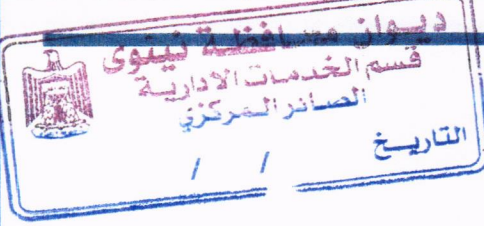 ديوان محافظة نينوى
قسم الخدمات الادارية
الصادر المركزي
التاريخ / /